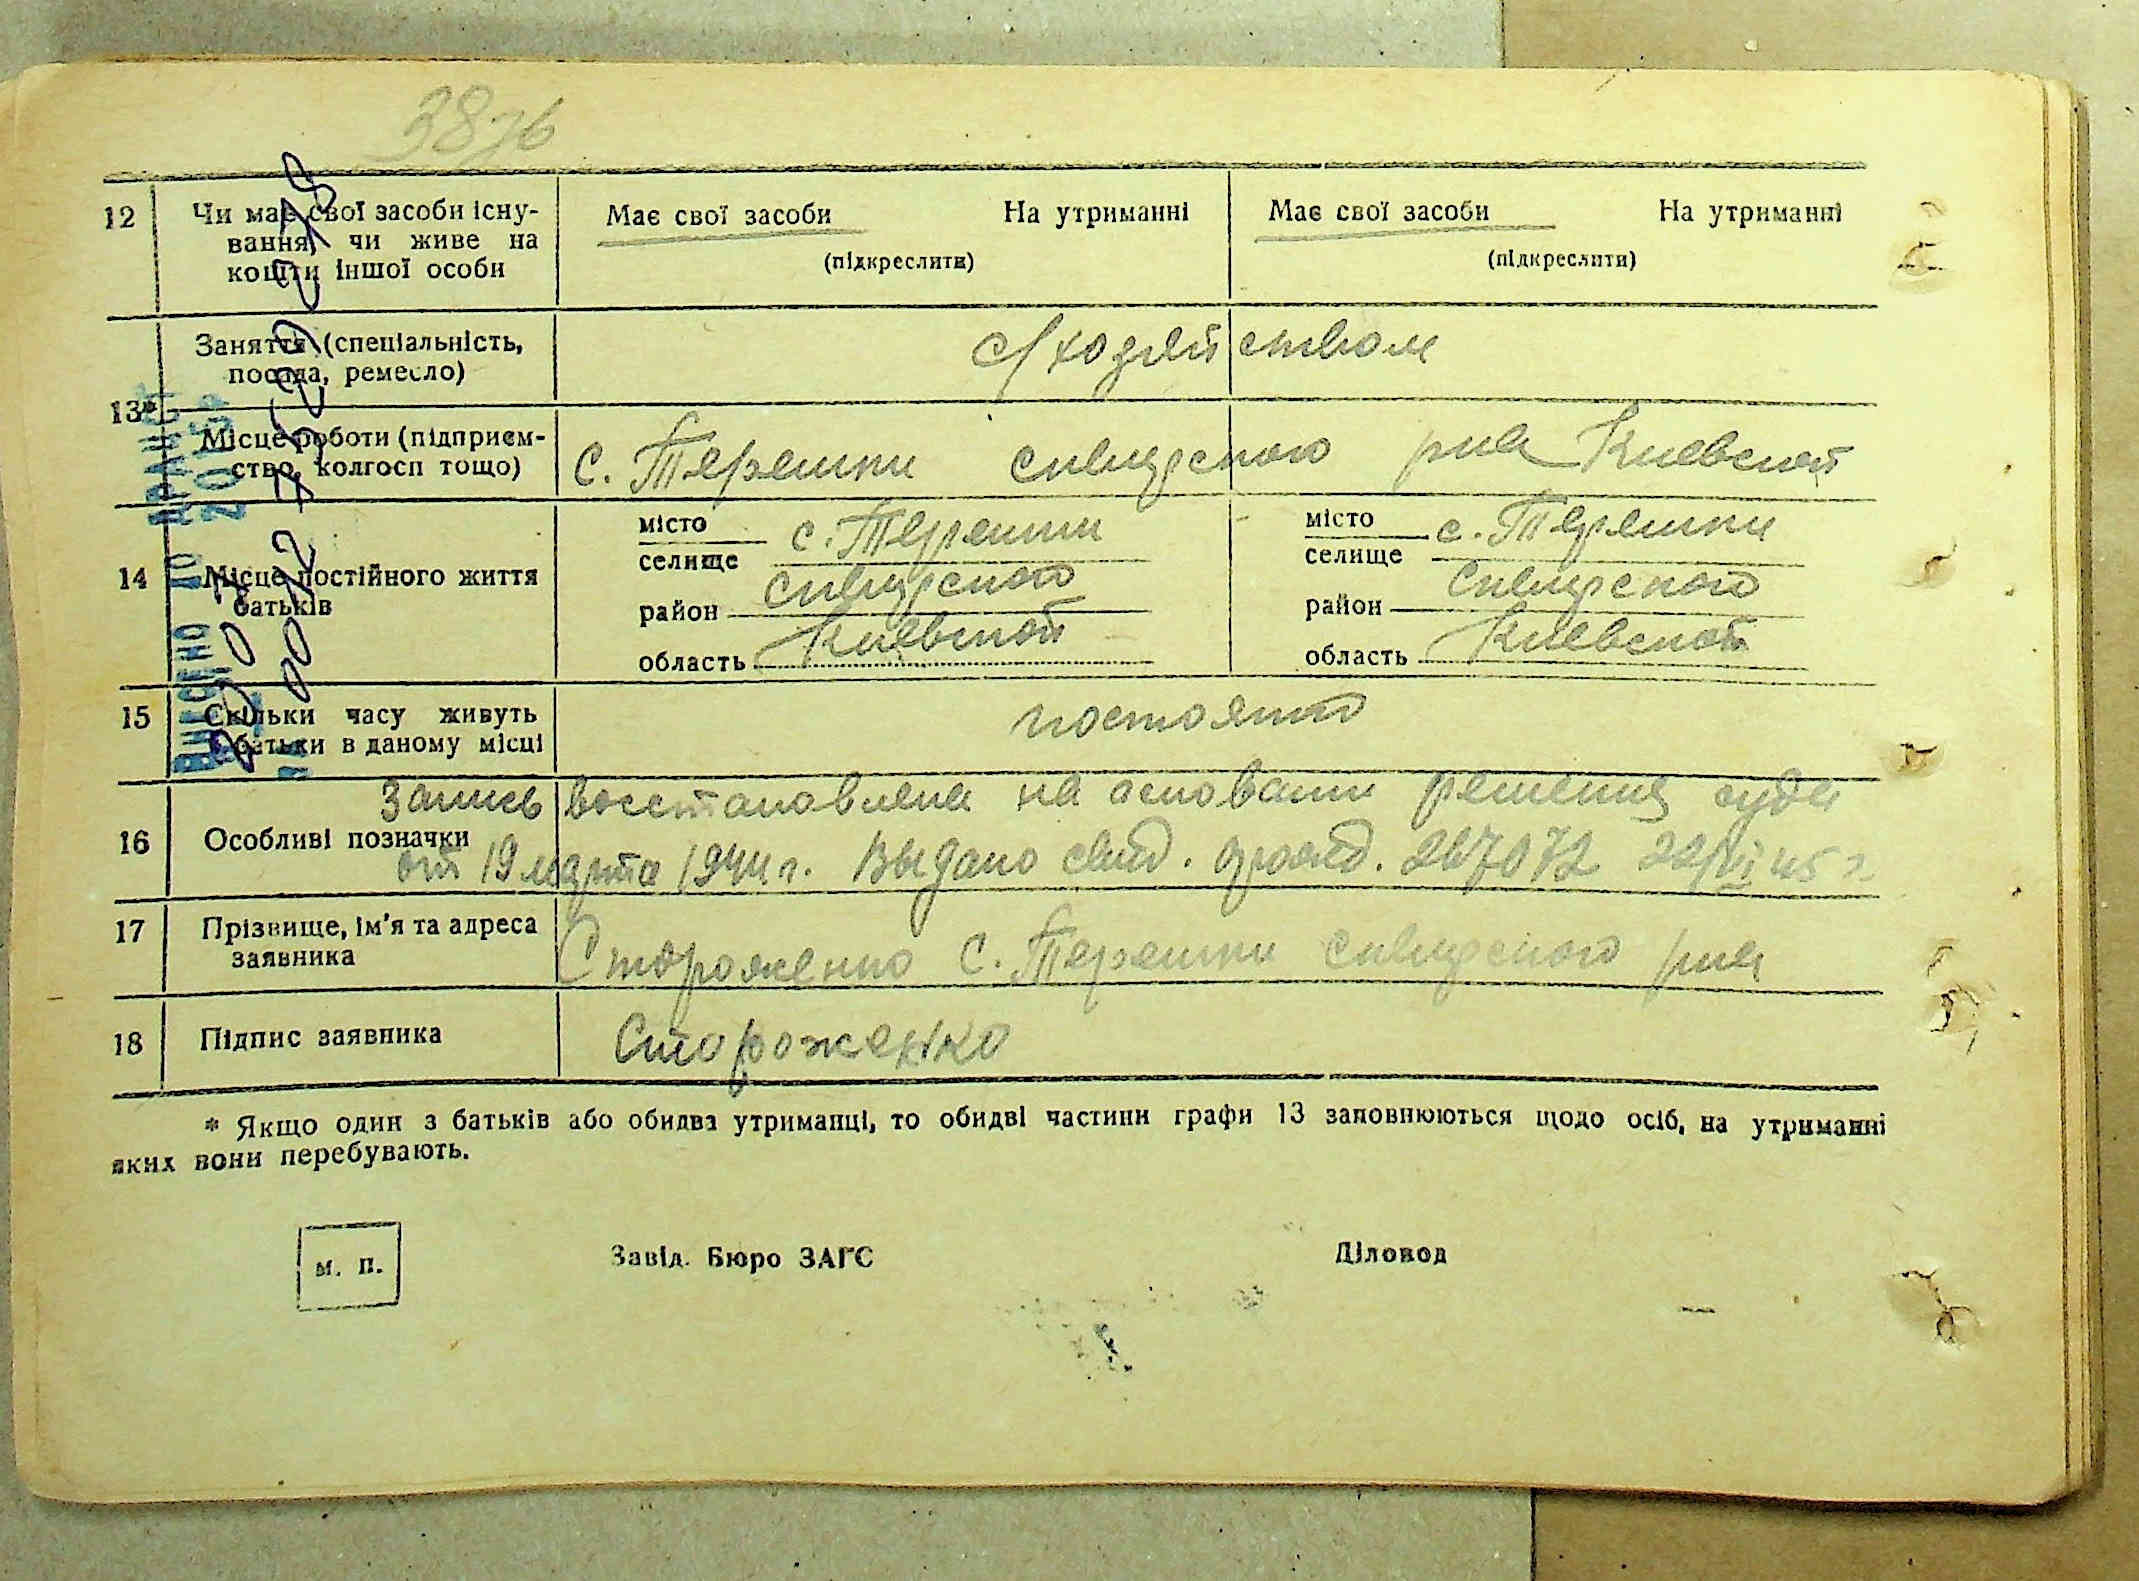 12 Чи має свої засоби існу-
вання, чи живе на
кошти іншої особи
Має свої засоби На утриманні
(підкреслити)
Має свої засоби На утриманні
(підкреслити)
13* Заняття (спеціальність,
посада, ремесло)
с/хозяйством
Місце роботи (підприєм-
ство, колгосп тощо)
с. Терешки сквирского р-на Киевской
14 Місце постійного життя
батьків
місто
селище с. Терешки
район сквирского
область Киевской
місто
селище с. Терешки
район сквирского
область Киевской
15 Скільки часу живуть
батьки в даному місці
постоянно
16 Особливі позначки
Запись восстановлена на основании решения суда
от 19 марта 1944 г. Выдано свид. 267072
17 Прізвище, ім'я та адреса
заявника
Стороженко с. Терешки сквирского р-на
18 Підпис заявника
Стороженко
* Якщо один з батьків або обидва утриманці, то обидві частини графи 13 заповнюються щодо осіб, на утриманні
яких вони перебувають.
м. п.
Завід. Бюро ЗАГС
Діловод